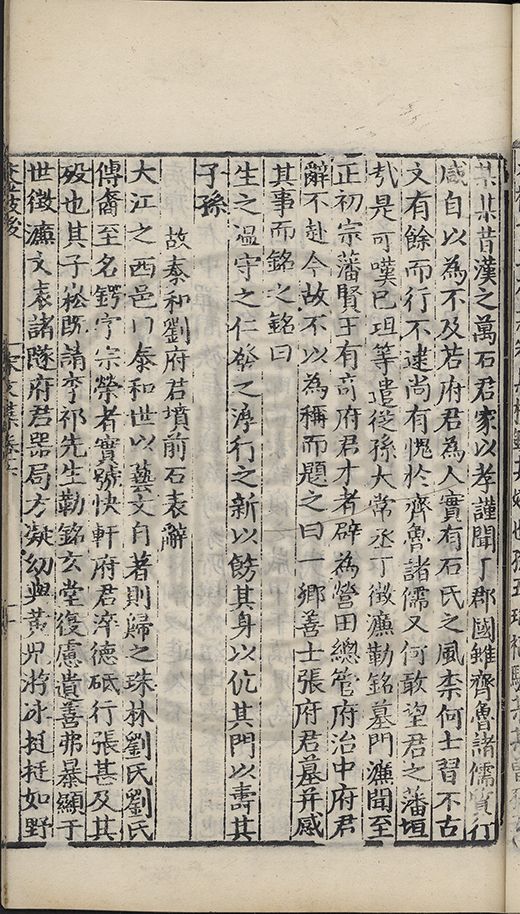 某某昔漢之萬石君家以孝謹聞丁郡國雖齊魯諸儒質行
咸自以為不及若府君為人實有石氏之風柰何士習不古
文有餘而行不逮尚有愧於齊魯諸儒又何敢望君之藩垣
㢤是可嘆已坦等遣從孫大常丞丁徵濂勒銘墓門濂聞至
正初宗藩賢王有奇府君才者辟為營田總管府治中府君
辭不赴今故不以為稱而題之曰一鄉善士張府君墓并感
其事而銘之銘曰
生之温守之仁發之渟行之新以飭其身以伉其門以壽其
子孫
故泰和劉府君墳前石表辭
大江之西邑曰泰和世以藝文自著則歸之珠林劉氏劉氏
傳裔至名鍔字宗榮者實號快軒府君淬德砥行張甚及其
殁也其子崧既請李祁先生勒銘玄堂復慮貴善弗暴顯于
世徵濂文表諸隧府君器局方凝幼與黃兒游冰挺挺如野